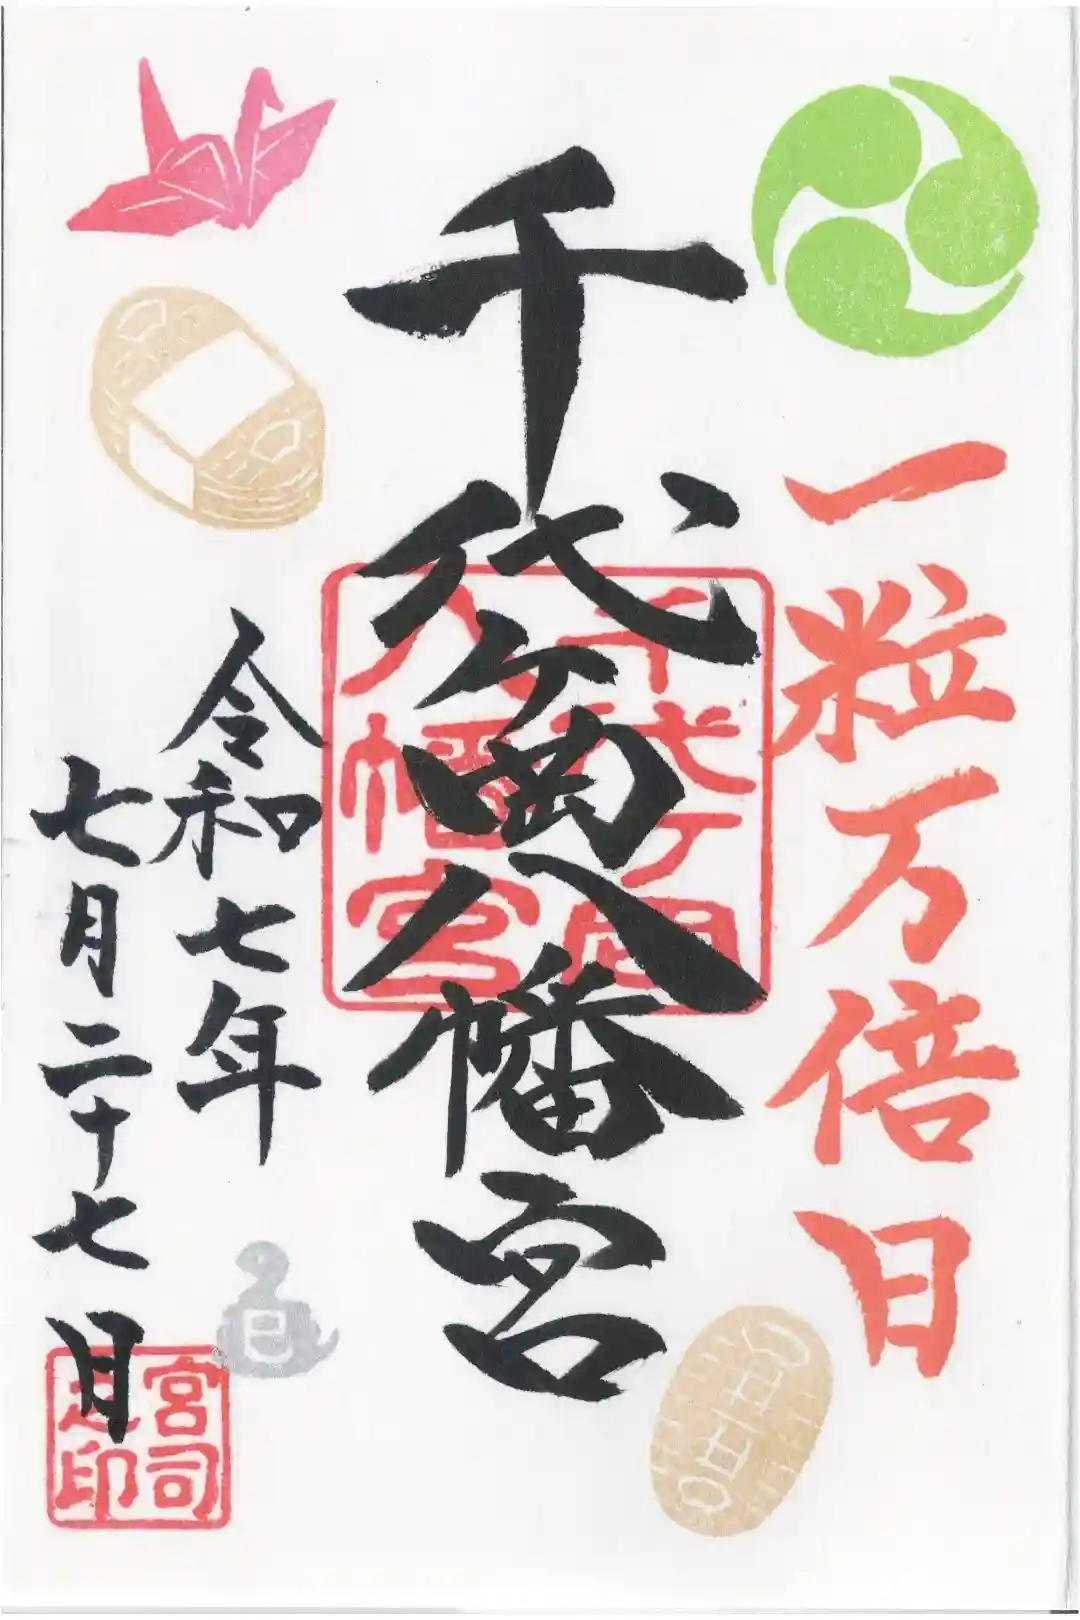 一粒万倍日
千代ヶ岡八幡宮
千代ヶ岡
八幡宮
令和七年
七月二十七日
巳
宮司
之印